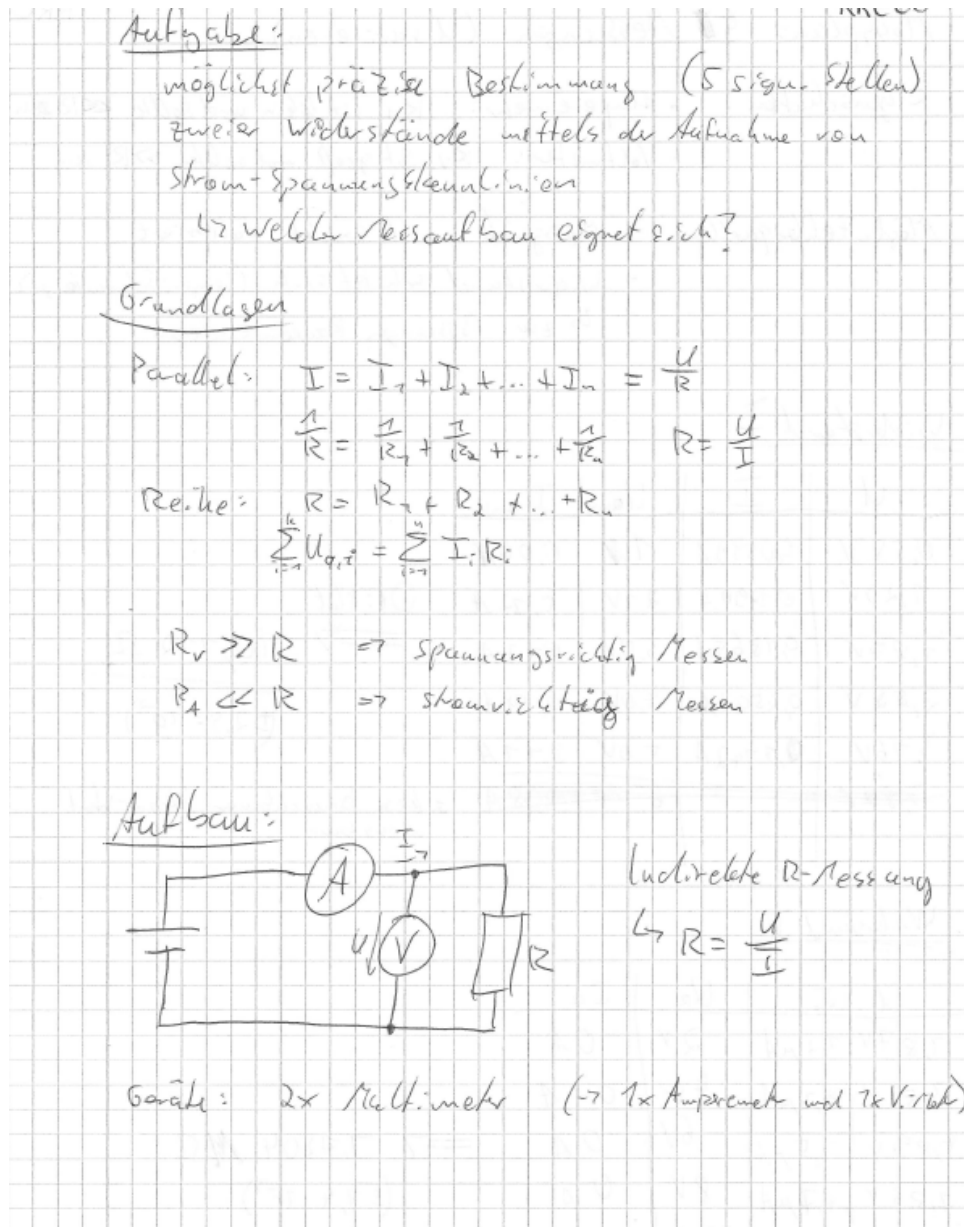 Aufgabe:
möglichst präzise Bestimmung (5 sign. Stellen)
zweier Widerstände mittels der Aufnahme von
Strom-Spannungskennlinien
↳ Welcher Messaufbau eignet sich?
Grundlagen
Parallel: I = I₁ + I₂ + ... + Iₙ = U/R
1/R = 1/R₁ + 1/R₂ + ... + 1/Rₙ R = U/I
Reihe: R = R₁ + R₂ + ... + Rₙ
∑ᵢ₌₁ᵏ U_q,i = ∑ᵢ₌₁ⁿ Iᵢ Rᵢ
R_V >> R => Spannungsrichtig Messen
R_A << R => stromrichtig Messen
Aufbau:
I
A
U V R
Indirekte R-Messung
↳ R = U/I
Geräte: 2x Multimeter (-> 1x Amperemeter und 1x V-Meter)